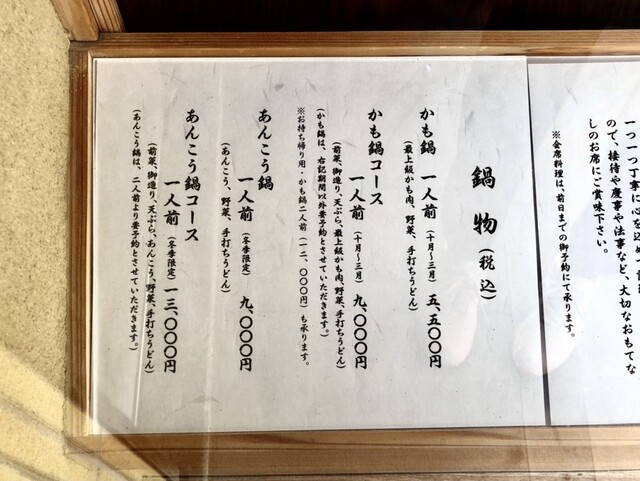 一つ一つ丁寧に心を込めて
ので、接待や慶事や法事など、大切なおもてな
しのお席にご賞味下さい。
※会席料理は、前日までの御予約にて承ります。
鍋物(税込)
かも鍋 一人前(十月〜三月)五、五〇〇円
(最上級かも肉、野菜、手打ちうどん)
かも鍋コース
一人前(十月〜三月)九、〇〇〇円
(前菜、御造り、天ぷら、最上級かも肉、野菜、手打ちうどん)
(かも鍋は、右記期間以外要予約とさせていただきます。)
※お持ち帰り用・かも鍋二人前(一二、〇〇〇円)も承ります。
あんこう鍋
一人前(冬季限定)九、〇〇〇円
(あんこう、野菜、手打ちうどん)
あんこう鍋コース
一人前(冬季限定)一三、〇〇〇円
(前菜、御造り、天ぷら、あんこう、野菜、手打ちうどん)
(あんこう鍋は、二人前より要予約とさせていただきます。)